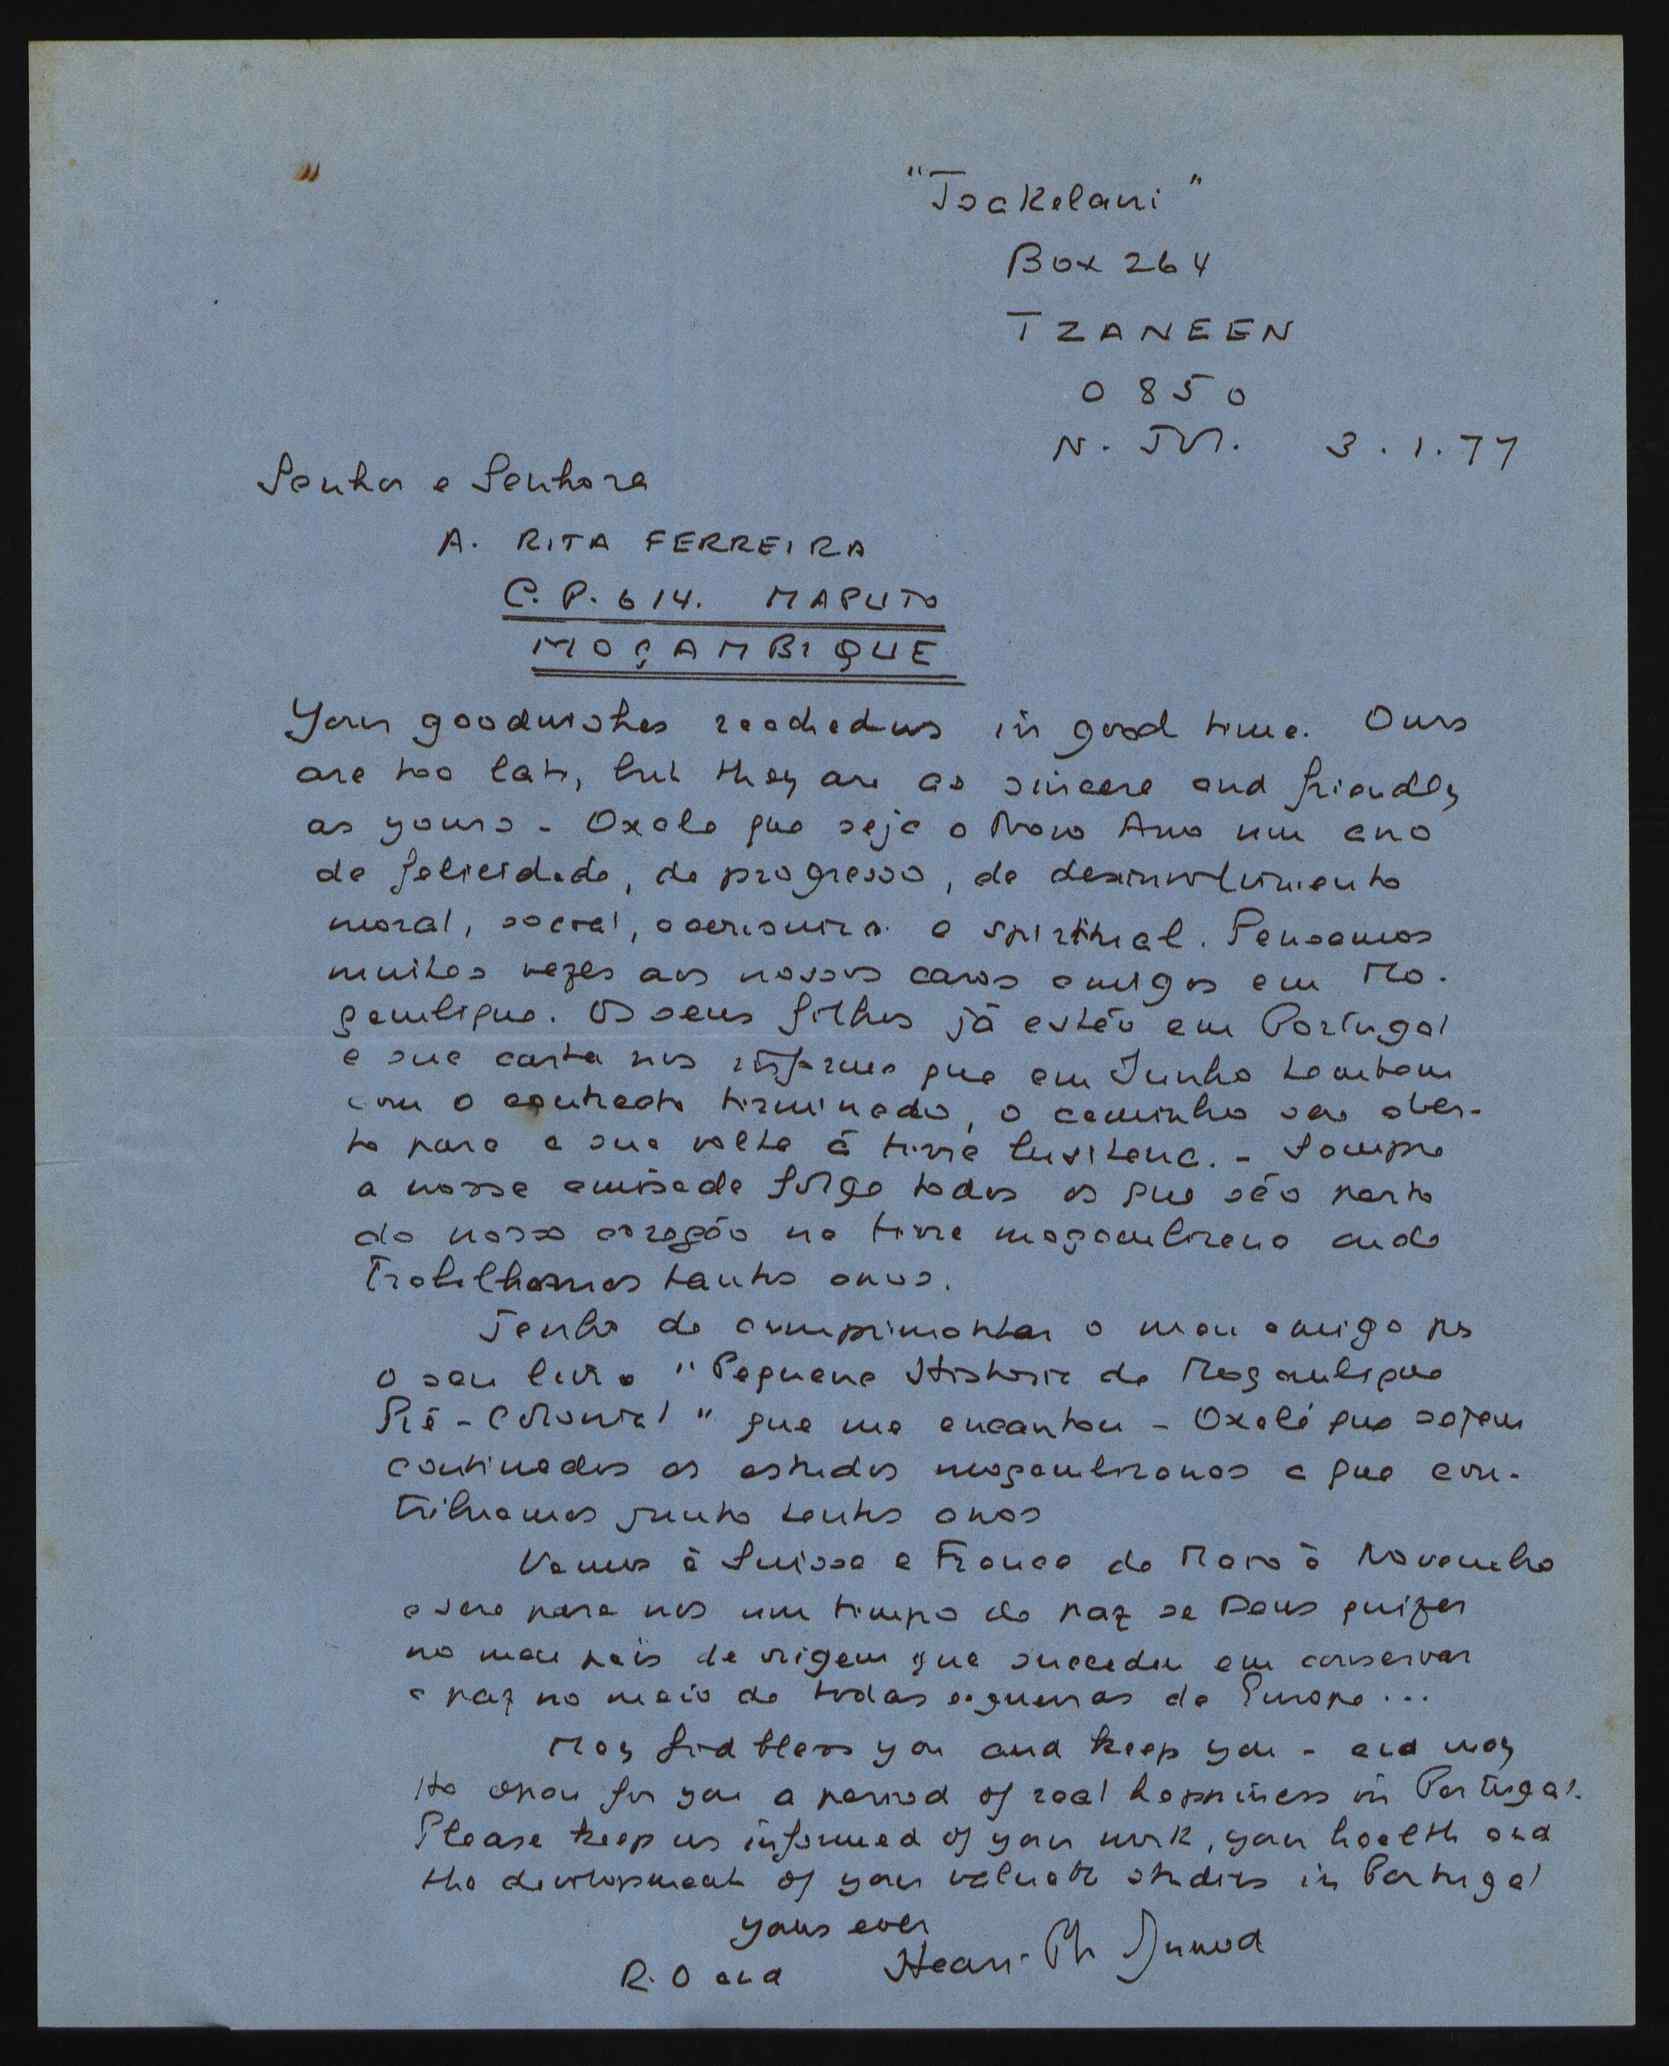 "Tsakelani"
Box 264
TZANEEN
0850
N. Tvl. 3.1.77
Senhor e Senhora
A. RITA FERREIRA
C.P. 614. MAPUTO
MOÇAMBIQUE
Your goodwishes reached us in good time. Ours
are too late, but they are as sincere and friendly
as yours - Oxala que seja o Novo Ano um ano
de felicidade, de progresso, de desenvolvimento
moral, social, e spiritual. Pensamos
muitas vezes aos nossos caros amigos em Mo-
çambique. Os seus filhos já estão em Portugal
e sua carta nos informa que em Junho tambem
com o contracto terminado, o caminho sera aber-
to para a sua volta á terra lusitana. - Sempre
a nossa amisade segue todos os que são parte
do nosso coração na terra moçambicana onde
Trabalhamos tantos anos.
Tenho de cumprimentar o meu amigo por
o seu livro "Pequena Historia de Moçambique
Pré-Colonial" que me encantou - Oxalá que sejam
continuados os estudos moçambicanos a que con-
tribuamos junto tantos anos
Vamos á Suissa e França de Maio á Novembro
e sera para nos um tempo de paz se Deus quizer
no meu pais de origem que succedeu em conservar
a paz no meio de todas as guerras da Europa ...
May God bless you and keep you - and may
He open for you a period of real happiness in Portugal.
Please keep us informed of your work, your health and
the development of your valuable studies in Portugal
yours ever
R. O and Henri Ph Junod